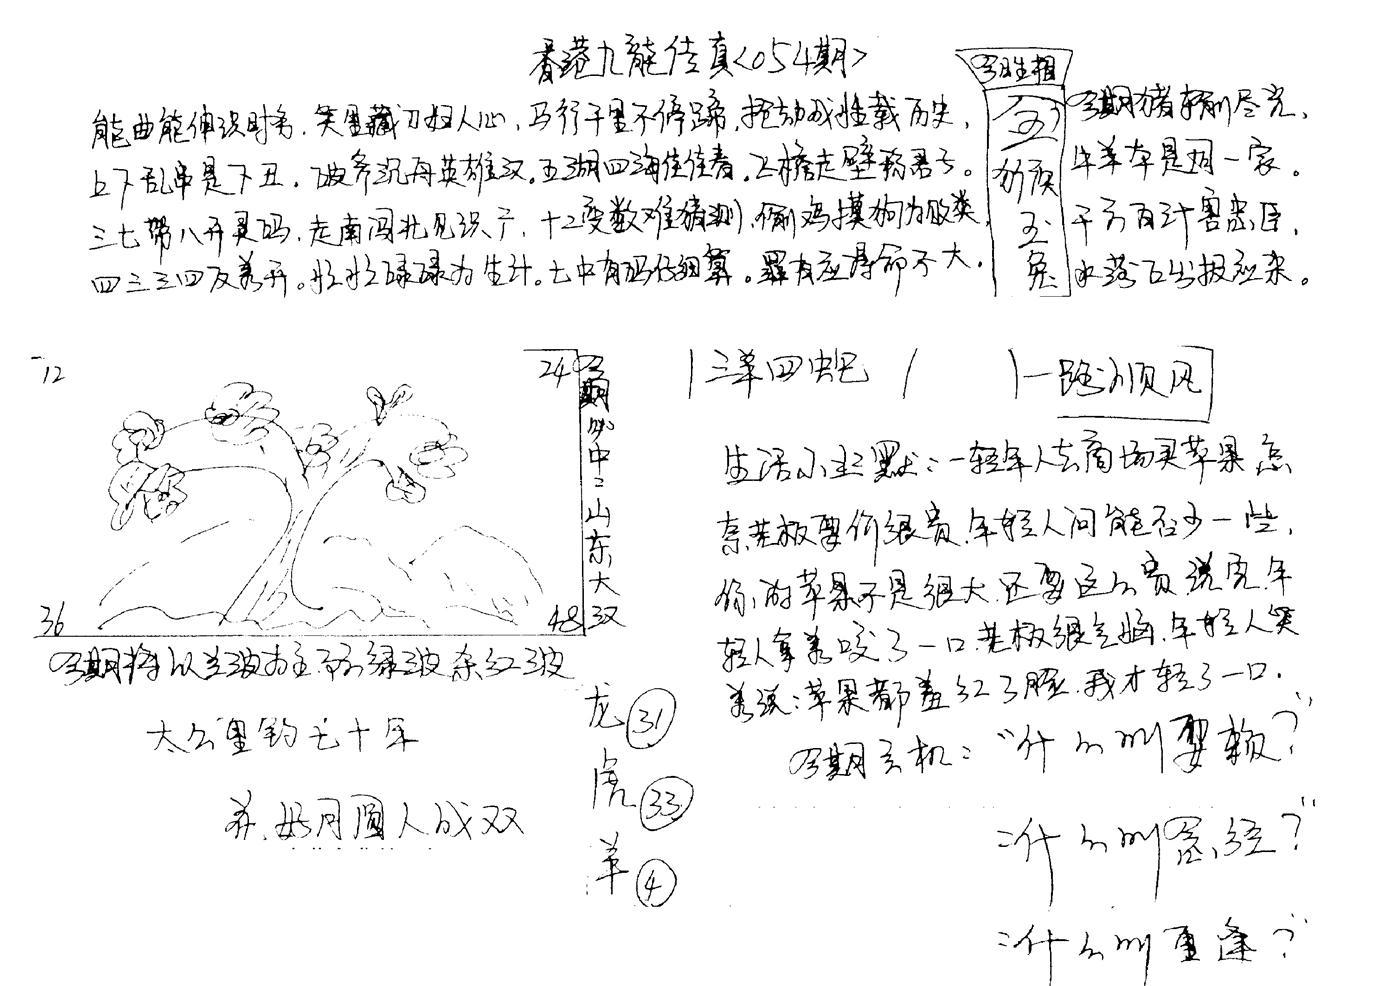 香港九龍传真<054期>
能曲能伸识时务，笑里藏刀妇人心，马行千里不停蹄，挖动成性载历史，
上下乱串是下丑，破斧沉舟英雄汉，五湖四海佳佳春，飞檐走壁称君子。
三七带八开灵码，走南闯北见识广，十二变数难猜测，偷鸡摸狗为败类，
四三三四反差开。忙忙碌碌为生计。七中有码仔细算。罪有应得命不大。
今日生相
玉
兔
今期猪
尽光，
牛羊本是同一家。
千方百计害忠臣，
水落石出报应来。
12
24
36
48
今期必中二山东大汉
今期特以兰波为主 绿波杂红波
太公里钓七十年
花好月圆人成双
龙 31
虎 33
羊 4
三羊四蛇
一路顺风
生活小幽默：一轻年人去商场买苹果 怎
奈老板要价很贵，年轻人问能否少一些，
你的苹果不是很大，还要这么贵，说完年
轻人拿着咬了一口，老板很气恼，年轻人笑
着说：苹果都羞红了脸，我才轻了一口.
今期玄机："什么叫耍赖？"
：什么叫念经？"
：什么叫重逢？"